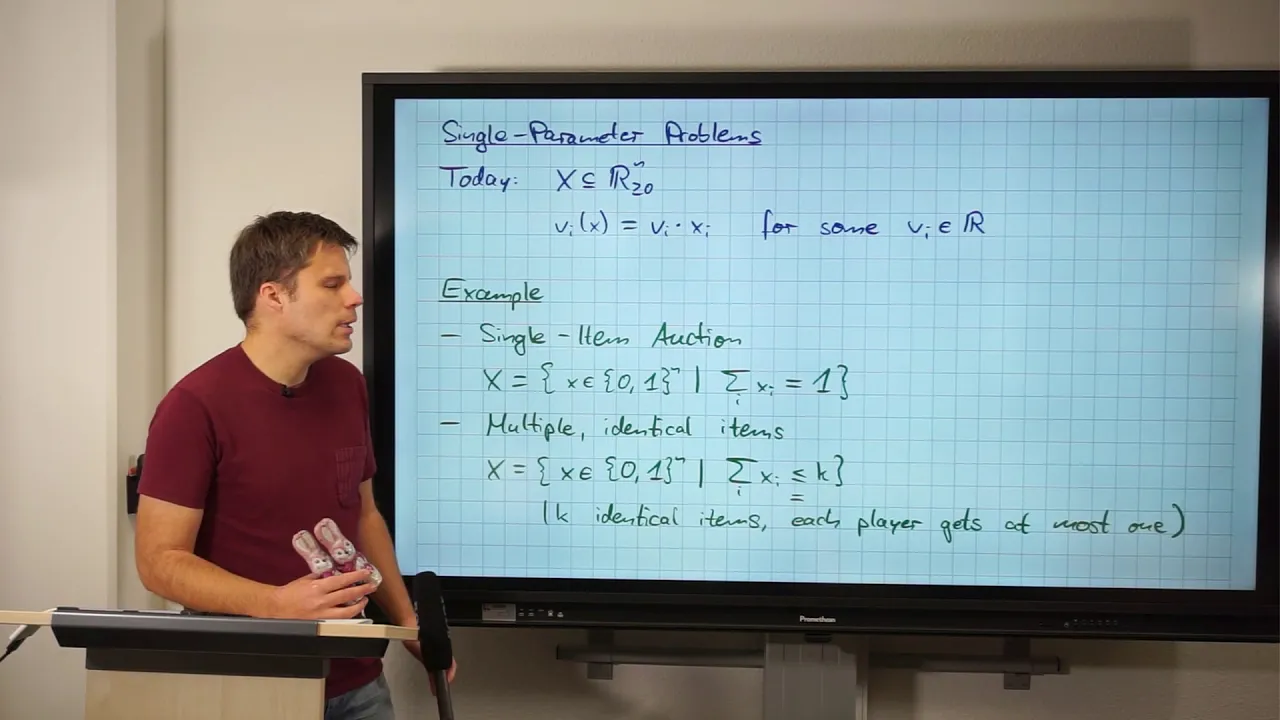 Single-Parameter Problems
Today: X ⊆ ℝⁿ≥0
vᵢ(x) = vᵢ · xᵢ for some vᵢ ∈ ℝ
Example
– Single-Item Auction
X = { x ∈ {0,1}ⁿ | ∑ᵢ xᵢ = 1}
– Multiple, identical items
X = { x ∈ {0,1}ⁿ | ∑ᵢ xᵢ ≤ k}
=
(k identical items, each player gets at most one)
Promethean